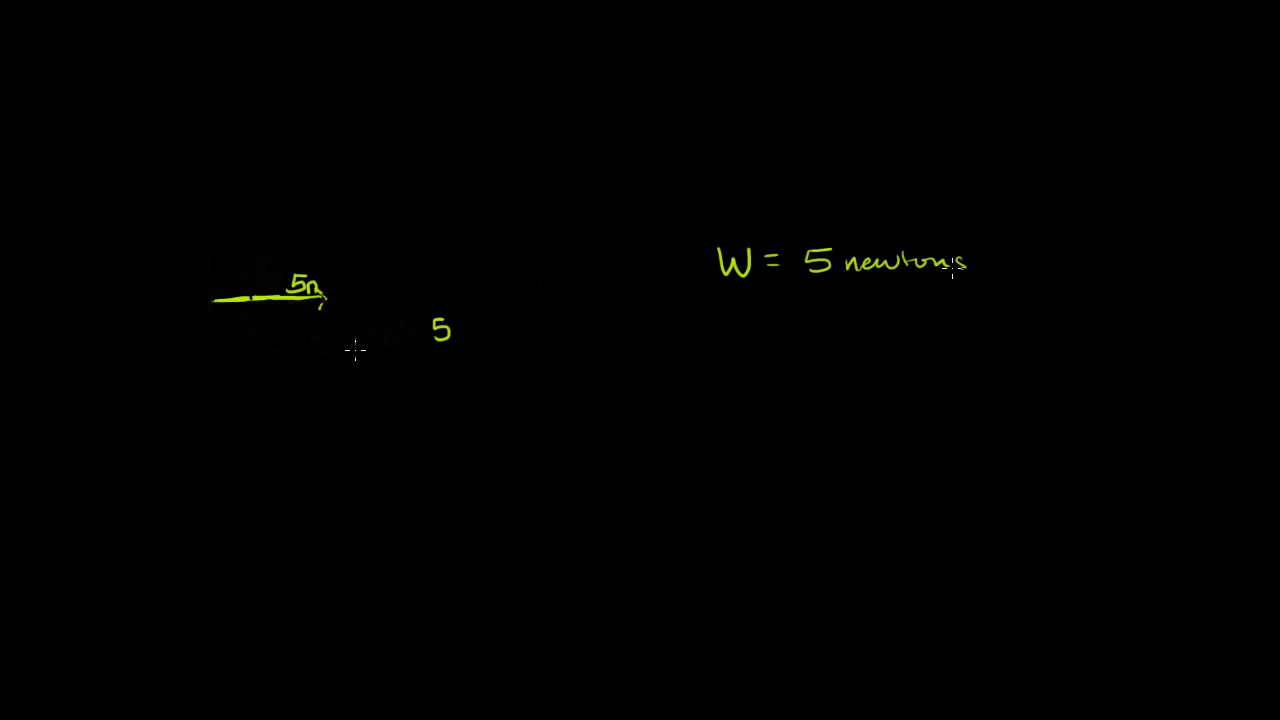 5n
W = 5 newtons
5